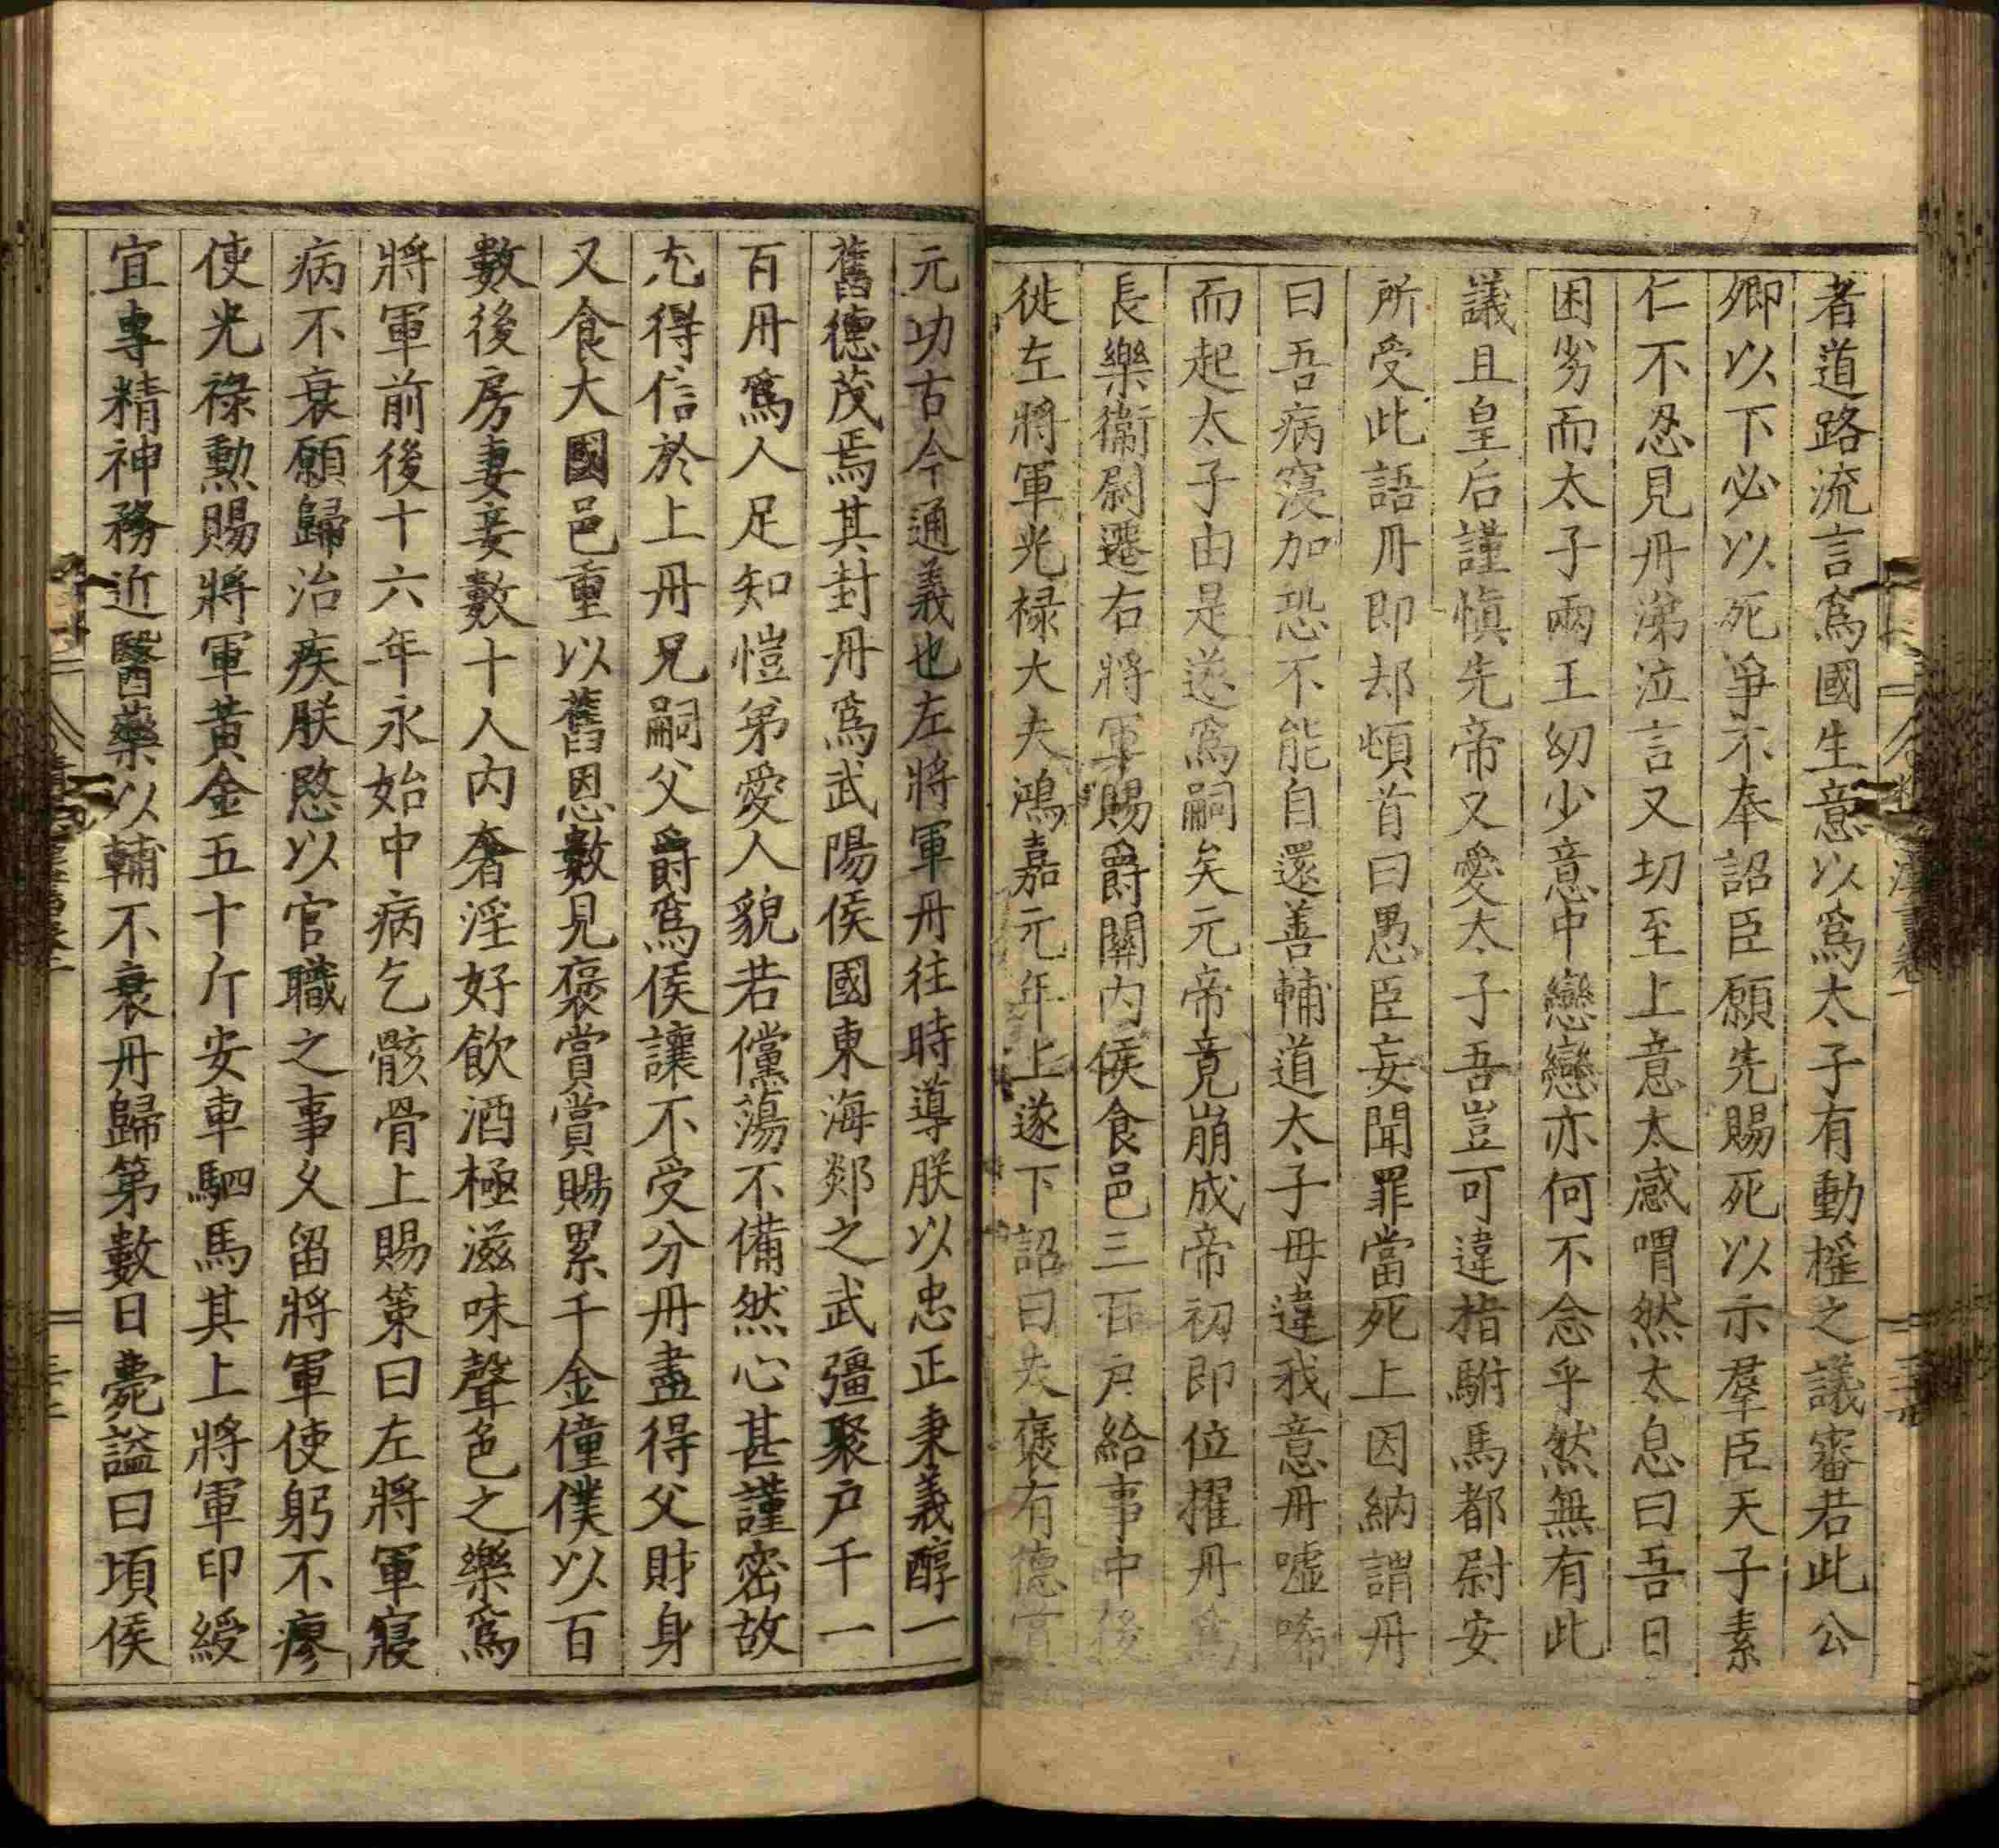 者道路流言爲國生意以爲太子有動搖之議審若此公
卿以下必以死爭不奉詔臣願先賜死以示羣臣天子素
仁不忍見丹涕泣言又切至上意大感喟然太息曰吾日
困劣而太子兩王幼少意中戀戀亦何不念乎然無有此
議且皇后謹愼先帝又愛太子吾豈可違指駙馬都尉安
所受此語丹即却頓首曰愚臣妄聞罪當死上因納謂丹
曰吾病寖加恐不能自還善輔道太子毋違我意丹噓唏
而起太子由是遂爲嗣矣元帝竟崩成帝初即位擢丹爲
長樂衞尉遷右將軍賜爵關內侯食邑三百戸給事中後
徙左將軍光祿大夫鴻嘉元年上遂下詔曰夫褒有德賞
元功古今通義也左將軍丹往時導朕以忠正秉義醇一
舊德茂焉其封丹爲武陽侯國東海郯之武彊聚戸千一
百丹爲人足知愷弟愛人貌若儻蕩不備然心甚謹密故
尤得信於上丹兄嗣父爵爲侯讓不受分丹盡得父財身
又食大國邑重以舊恩數見褒賞賞賜累千金僮僕以百
數後房妻妾數十人內奢淫好飲酒極滋味聲色之樂爲
將軍前後十六年永始中病乞骸骨上賜策曰左將軍寢
病不衰願歸治疾朕愍以官職之事久留將軍使躬不瘳
使光祿勳賜將軍黃金五十斤安車駟馬其上將軍印綬
宜專精神務近醫藥以輔不衰丹歸第數日薨諡曰頃侯